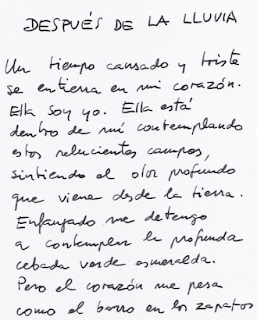 DESPUÉS DE LA LLUVIA
Un tiempo cansado y triste
se entierra en mi corazón.
Ella soy yo. Ella está
dentro de mí contemplando
estos relucientes campos,
sintiendo el olor profundo
que viene desde la tierra.
Enfangado me detengo
a contemplar la profunda
cebada verde esmeralda.
Pero el corazón me pesa
como el barro en los zapatos